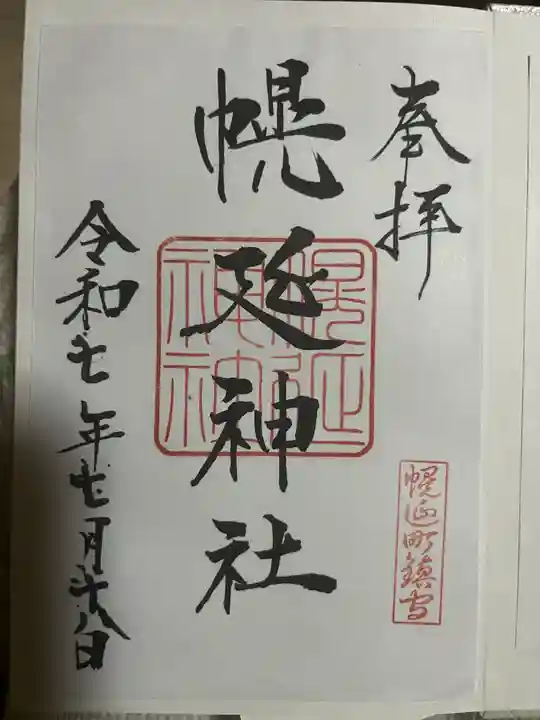 奉拝
幌延神社
幌延神社
幌延町鎮守
令和七年七月廿八日